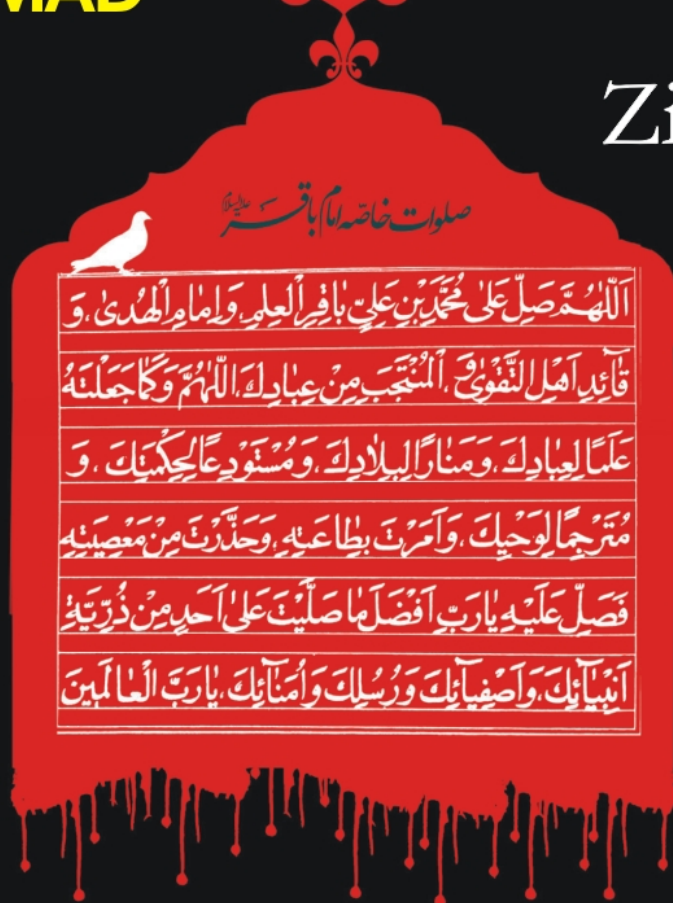 MAD
Zi
صلوات خاصه امام باقر علیه‌السلام
اَللّٰهُمَّ صَلِّ عَلىٰ مُحَمَّدِ بْنِ عَلِيٍّ بٰاقِرِ الْعِلْمِ، وَاِمٰامِ الْهُدىٰ، وَ
قٰآئِدِ اَهْلِ التَّقْوىٰ وَ، الْمُنْتَجَبِ مِنْ عِبٰادِكَ، اَللّٰهُمَّ وَكَمٰا جَعَلْتَهُ
عَلَمًا لِعِبٰادِكَ، وَمَنٰارًا لِبِلٰادِكَ، وَمُسْتَوْدِعًا لِحِكْمَتِكَ، وَ
مُتَرْجِمًا لِوَحْيِكَ، وَاَمَرْتَ بِطٰاعَتِهِ، وَحَذَّرْتَ مِنْ مَعْصِيَتِهِ
فَصَلِّ عَلَيْهِ يٰا رَبِّ اَفْضَلَ مٰا صَلَّيْتَ عَلىٰ اَحَدٍ مِنْ ذُرِّيَّةِ
اَنْبِيٰآئِكَ، وَاَصْفِيٰآئِكَ وَرُسُلِكَ وَاُمَنٰآئِكَ، يٰا رَبَّ الْعٰالَمِينَ